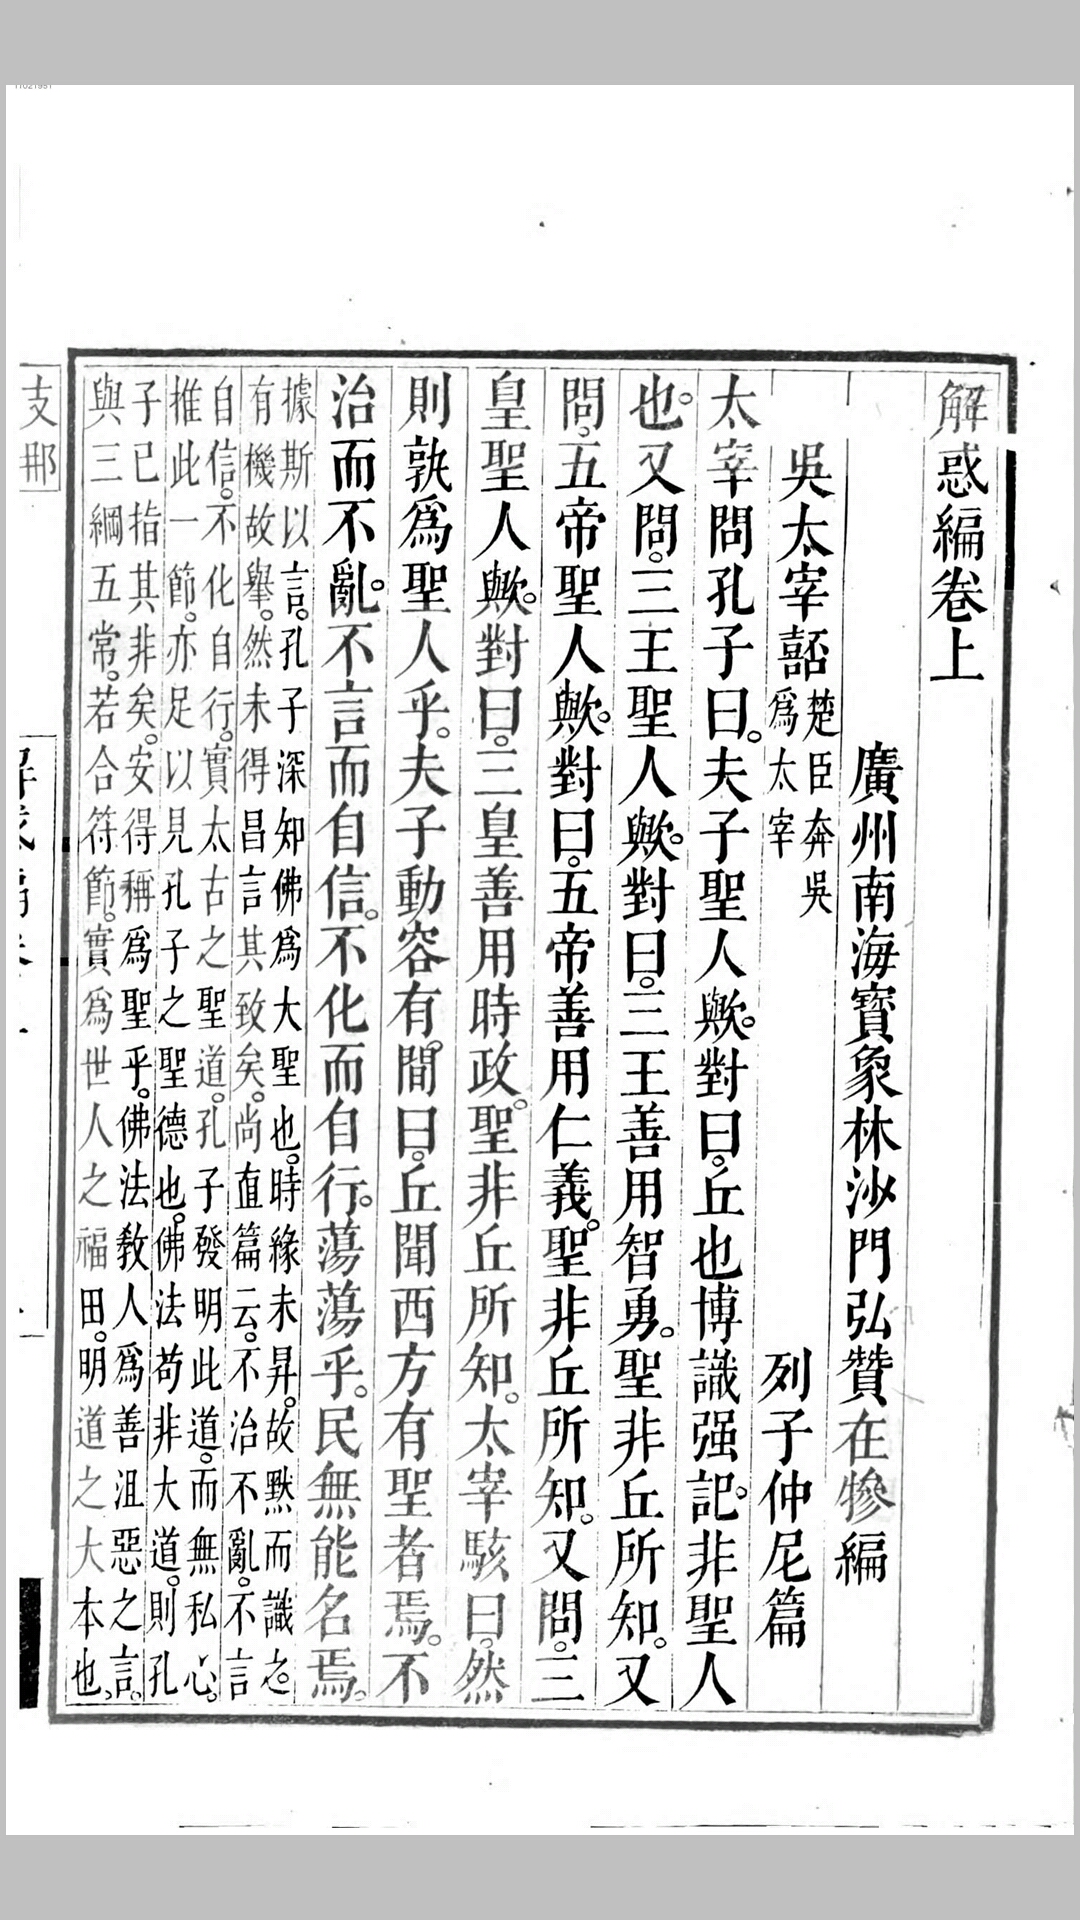 解惑編卷上
廣州南海寶象林沙門弘贊在犙編
吳太宰嚭楚臣奔吳爲太宰 列子仲尼篇
太宰問孔子曰。夫子聖人歟。對曰。丘也博識强記。非聖人
也。又問。三王聖人歟。對曰。三王善用智勇。聖非丘所知。又
問。五帝聖人歟。對曰。五帝善用仁義。聖非丘所知。又問。三
皇聖人歟。對曰。三皇善用時政。聖非丘所知。太宰駭曰。然
則孰爲聖人乎。夫子動容有間曰。丘聞西方有聖者焉。不
治而不亂。不言而自信。不化而自行。蕩蕩乎。民無能名焉。
據斯以言。孔子深知佛爲大聖也。時緣未昇。故默而識之。
有機故舉。然未得昌言其致矣。尚直篇云。不治不亂。不言
自信。不化自行。實太古之聖道。孔子發明此道。而無私心。
推此一節。亦足以見孔子之聖德也。佛法苟非大道。則孔
子已指其非矣。安得稱爲聖乎。佛法教人爲善沮惡之言。
與三綱五常。若合符節。實爲世人之福田。明道之大本也。
支那